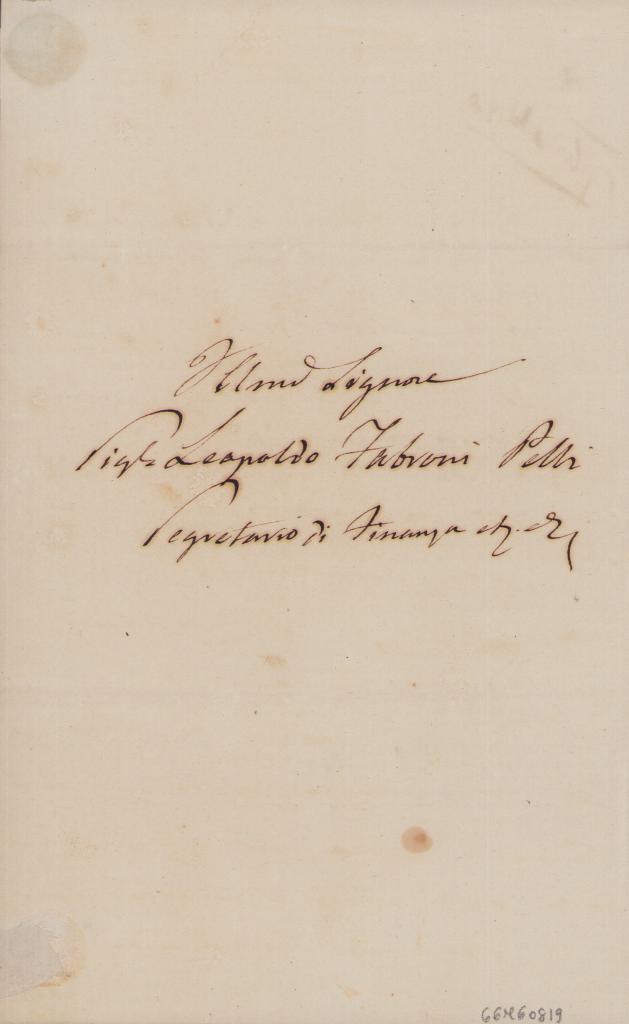 Illmo Signore
Sigr Leopoldo Fabroni Pelli
Segretario di Finanza